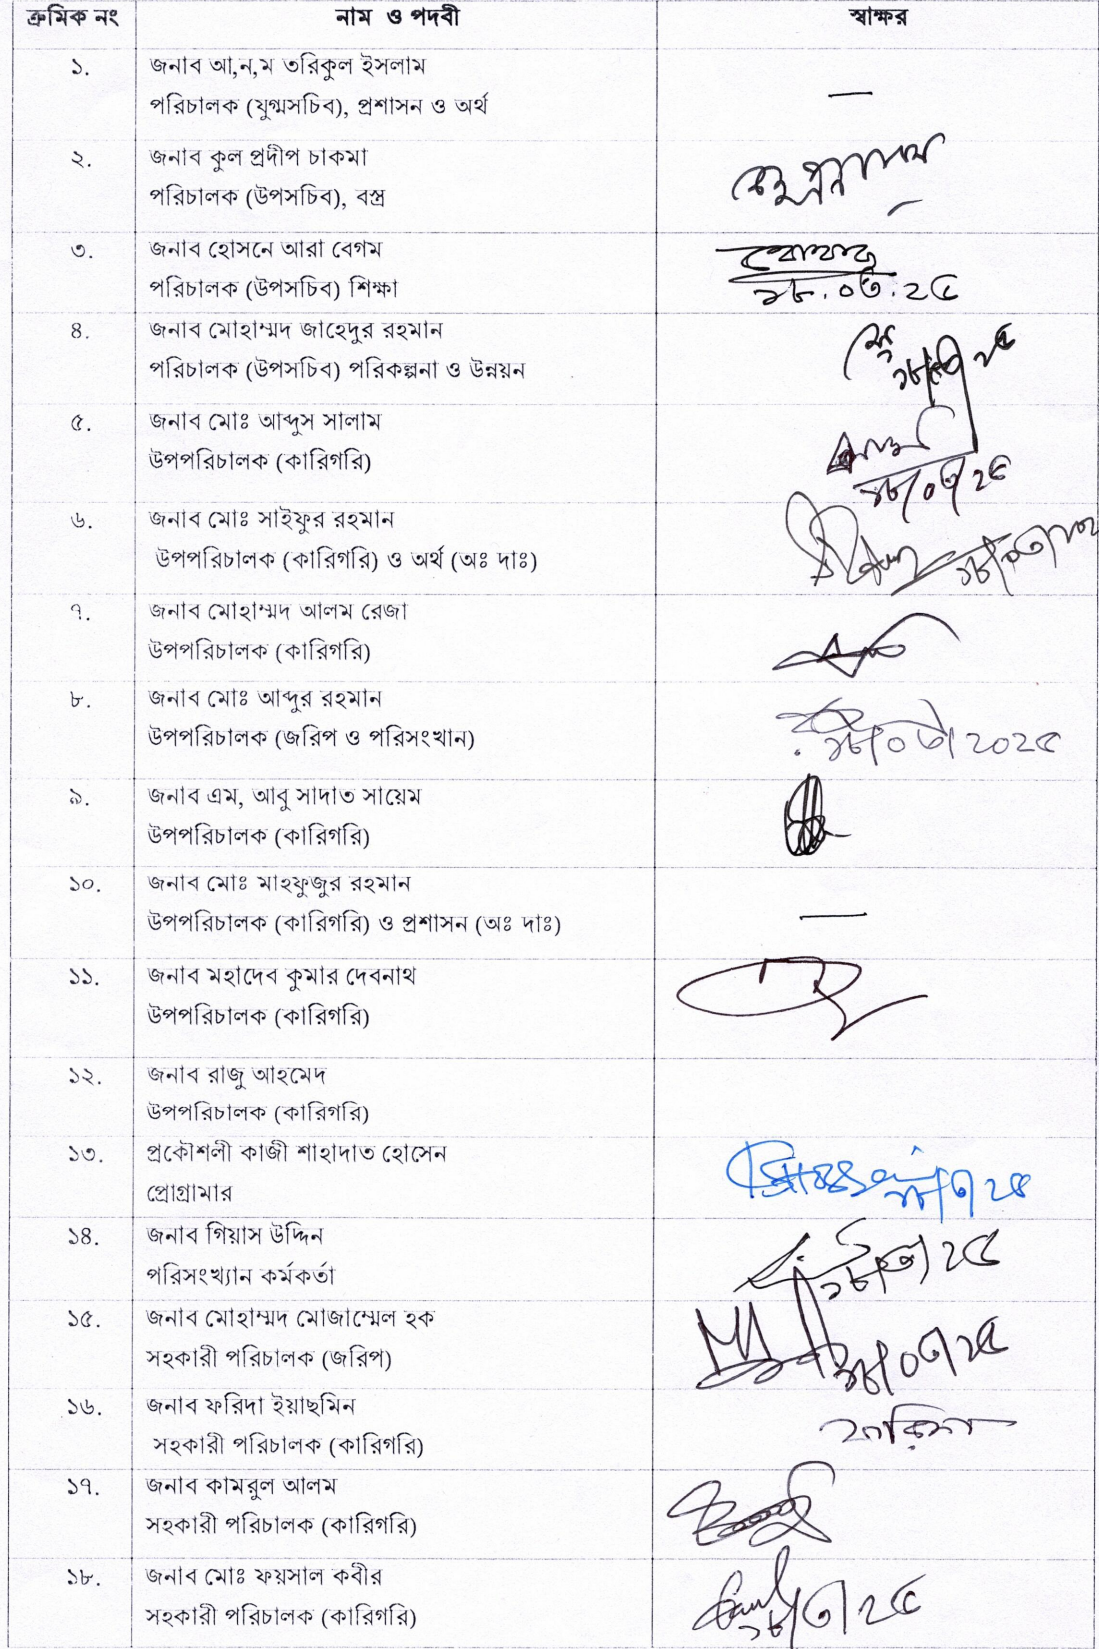 ক্রমিক নং নাম ও পদবী স্বাক্ষর
১. জনাব আ,ন,ম তরিকুল ইসলাম
পরিচালক (যুগ্মসচিব), প্রশাসন ও অর্থ
২. জনাব কুল প্রদীপ চাকমা
পরিচালক (উপসচিব), বস্ত্র
৩. জনাব হোসনে আরা বেগম
পরিচালক (উপসচিব) শিক্ষা
১৮.০৩.২৫
৪. জনাব মোহাম্মদ জাহেদুর রহমান
পরিচালক (উপসচিব) পরিকল্পনা ও উন্নয়ন
৫. জনাব মোঃ আব্দুস সালাম
উপপরিচালক (কারিগরি)
১৮/০৩/২৫
৬. জনাব মোঃ সাইফুর রহমান
উপপরিচালক (কারিগরি) ও অর্থ (অঃ দাঃ)
৭. জনাব মোহাম্মদ আলম রেজা
উপপরিচালক (কারিগরি)
৮. জনাব মোঃ আব্দুর রহমান
উপপরিচালক (জরিপ ও পরিসংখান)
১৮/০৩/২০২৫
৯. জনাব এম, আবু সাদাত সায়েম
উপপরিচালক (কারিগরি)
১০. জনাব মোঃ মাহফুজুর রহমান
উপপরিচালক (কারিগরি) ও প্রশাসন (অঃ দাঃ)
১১. জনাব মহাদেব কুমার দেবনাথ
উপপরিচালক (কারিগরি)
১২. জনাব রাজু আহমেদ
উপপরিচালক (কারিগরি)
১৩. প্রকৌশলী কাজী শাহাদাত হোসেন
প্রোগ্রামার
১৮/৩/২৫
১৪. জনাব গিয়াস উদ্দিন
পরিসংখ্যান কর্মকর্তা
১৮/৩/২৫
১৫. জনাব মোহাম্মদ মোজাম্মেল হক
সহকারী পরিচালক (জরিপ)
১৮/০৩/২৫
১৬. জনাব ফরিদা ইয়াছমিন
সহকারী পরিচালক (কারিগরি)
১৭. জনাব কামরুল আলম
সহকারী পরিচালক (কারিগরি)
১৮. জনাব মোঃ ফয়সাল কবীর
সহকারী পরিচালক (কারিগরি)
১৮/৩/২৫